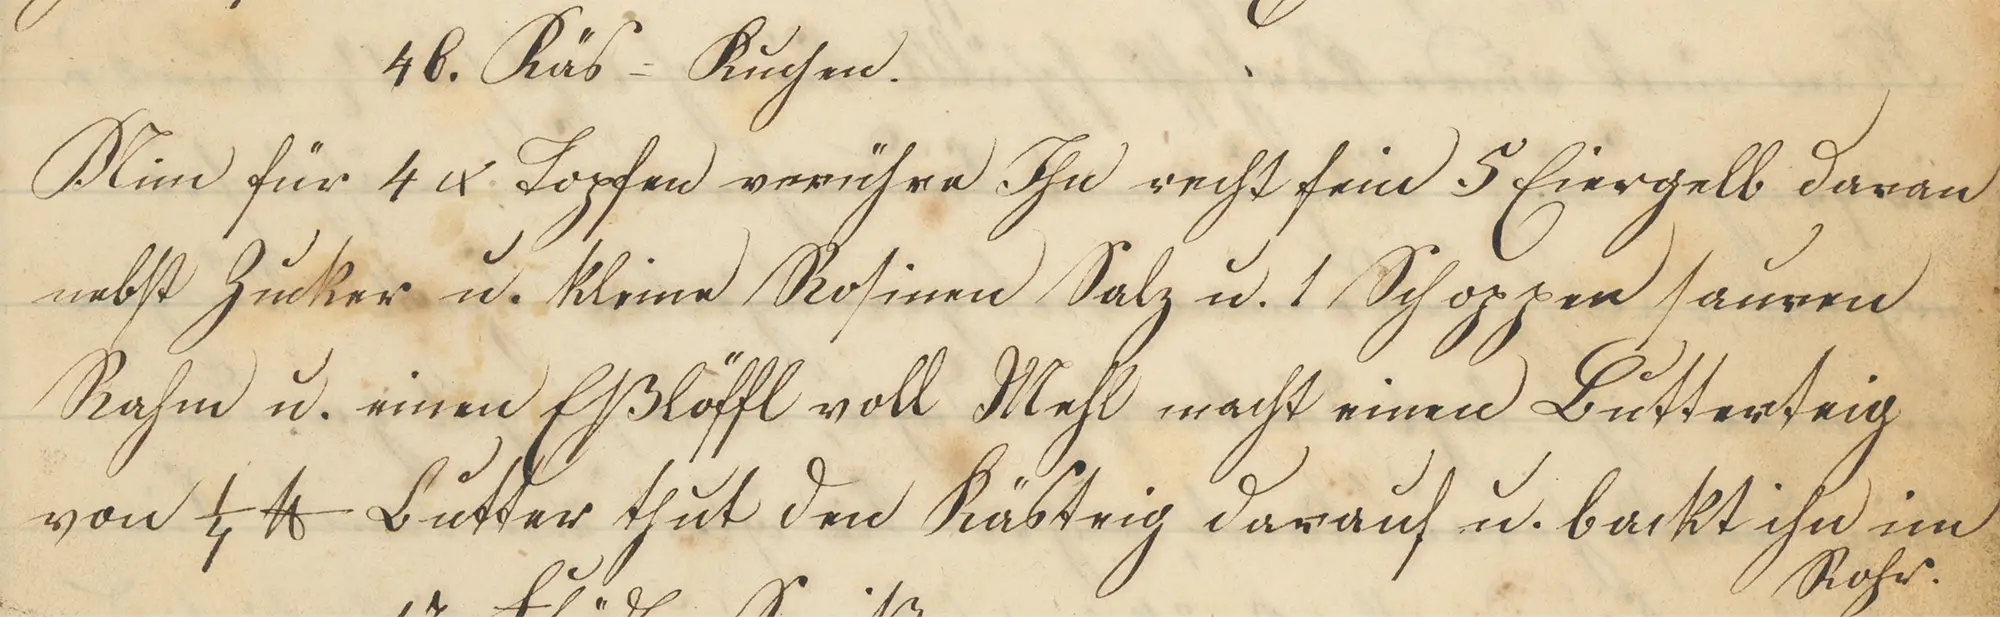 46. Käs=Kuchen.
Nim für 4 x Topfen verrühre Ihn recht fein 5 Eiergelb daran
nebst Zucker u. kleine Rosinen Salz u. 1 Schoppen sauren
Rahm u. einen Eßlöffl voll Mehl macht einen Butterteig
von 1/4 ℔ Butter thut den Kästeig darauf u. backt ihn im
Rohr.